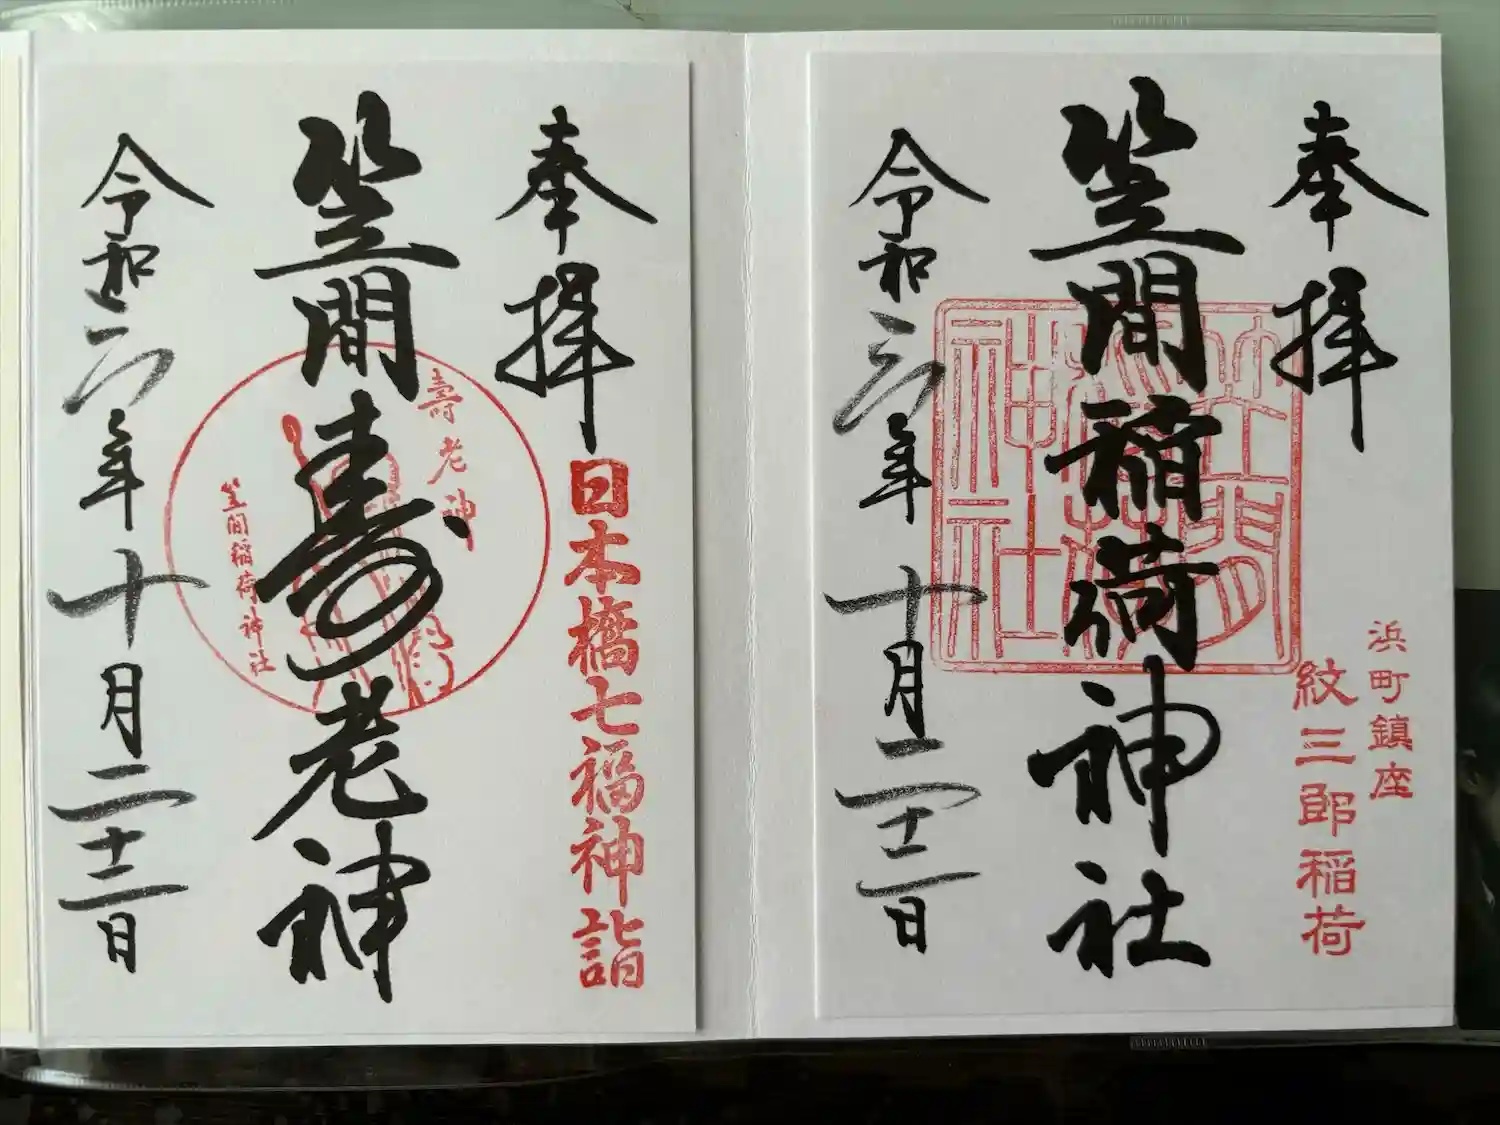 奉拝
浜町鎮座
紋三郎稲荷
笠間稲荷神社
笠間
稲荷
神社
令和六年十月二十二日
奉拝
日本橋七福神詣
笠間寿老神
壽老神
笠間稲荷神社
令和六年十月二十二日